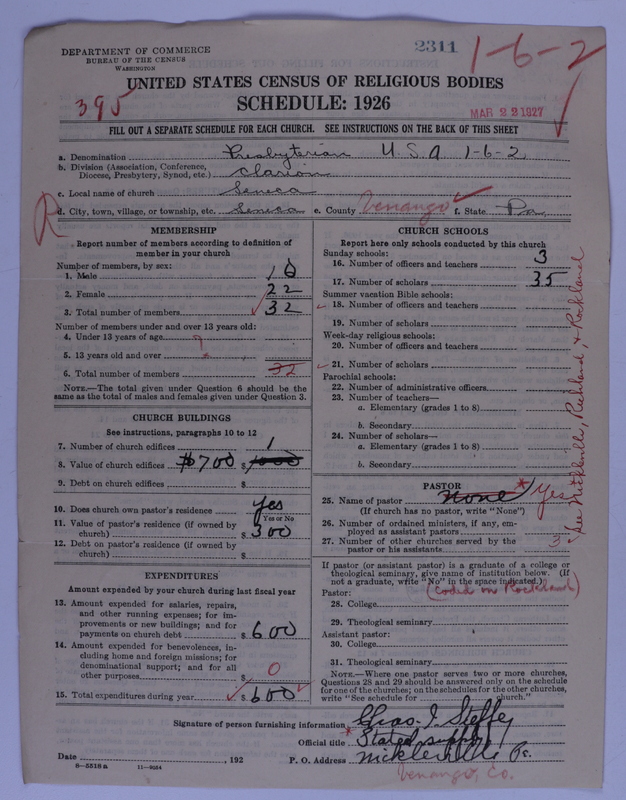 DEPARTMENT OF COMMERCE
BUREAU OF THE CENSUS
WASHINGTON
2311
1-6-2
UNITED STATES CENSUS OF RELIGIOUS BODIES
395
SCHEDULE: 1926
MAR 22 1927
FILL OUT A SEPARATE SCHEDULE FOR EACH CHURCH. SEE INSTRUCTIONS ON THE BACK OF THIS SHEET
a. Denomination Presbyterian U.S.A 1-6-2
b. Division (Association, Conference, Diocese, Presbytery, Synod, etc.) Clarion
c. Local name of church Seneca
R
d. City, town, village, or township, etc. Seneca e. County Venango f. State Pa
MEMBERSHIP
Report number of members according to definition of
member in your church
Number of members, by sex:
1. Male 10
2. Female 22
3. Total number of members 32
Number of members under and over 13 years old:
4. Under 13 years of age ?
5. 13 years old and over
6. Total number of members 32
NOTE.—The total given under Question 6 should be
same as the total of males and females given under Question 3.
CHURCH BUILDINGS
See instructions, paragraphs 10 to 12
7. Number of church edifices 1
8. Value of church edifices $700 $
9. Debt on church edifices $
10. Does church own pastor's residence yes
Yes or No
11. Value of pastor's residence (if owned by
church) $ 300
12. Debt on pastor's residence (if owned by
church) $
EXPENDITURES
Amount expended by your church during last fiscal year
13. Amount expended for salaries, repairs,
and other running expenses; for im-
provements or new buildings; and for
payments on church debt $ 600
14. Amount expended for benevolences, in-
cluding home and foreign missions; for
denominational support; and for all
other purposes $ 0
15. Total expenditures during year $ 600
CHURCH SCHOOLS
Report here only schools conducted by this church
Sunday schools:
16. Number of officers and teachers 3
17. Number of scholars 35
Summer vacation Bible schools:
18. Number of officers and teachers
19. Number of scholars
Week-day religious schools:
20. Number of officers and teachers
21. Number of scholars
Parochial schools:
22. Number of administrative officers
23. Number of teachers—
a. Elementary (grades 1 to 8)
b. Secondary
24. Number of scholars—
a. Elementary (grades 1 to 8)
b. Secondary
PASTOR
25. Name of pastor None * Yes
(If church has no pastor, write "None")
26. Number of ordained ministers, if any, em-
ployed as assistant pastors
27. Number of other churches served by the
pastor or his assistants 3
See Nickleville, Richland, & Rockland
If pastor (or assistant pastor) is a graduate of a college or
theological seminary, give name of institution below. (If
not a graduate, write "No" in the space indicated.)
Pastor: (Coded on Rockland)
28. College
29. Theological seminary
Assistant pastor:
30. College
31. Theological seminary
NOTE.—Where one pastor serves two or more churches,
Questions 28 and 29 should be answered only on the schedule
for one of the churches; on the schedules for the other churches,
write "See schedule for church."
Signature of person furnishing information Chas. I. Steffey
Official title * Stated supply
Date , 192 P. O. Address Nickleville Pa.
8-5518a 11-9054
Venango, Co.